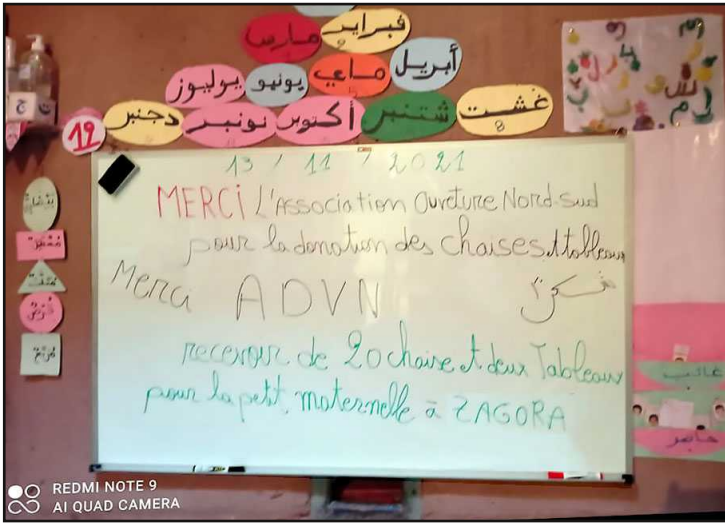 مارس
فبراير
2
يوليوز
يونيو
ماي
5
أبريل
12
دجنبر
نونبر
أكتوبر
شتنبر
غشت
8
13 / 11 / 2021
MERCi L'Association Ouveture Nord-Sud
pour la donation des chaises et tableaux
Merci ADVN شكرا
recevoir de 20 chaise et deux Tableaux
pour la petit maternelle à ZAGORA
غائب
حاضر
REDMI NOTE 9
AI QUAD CAMERA